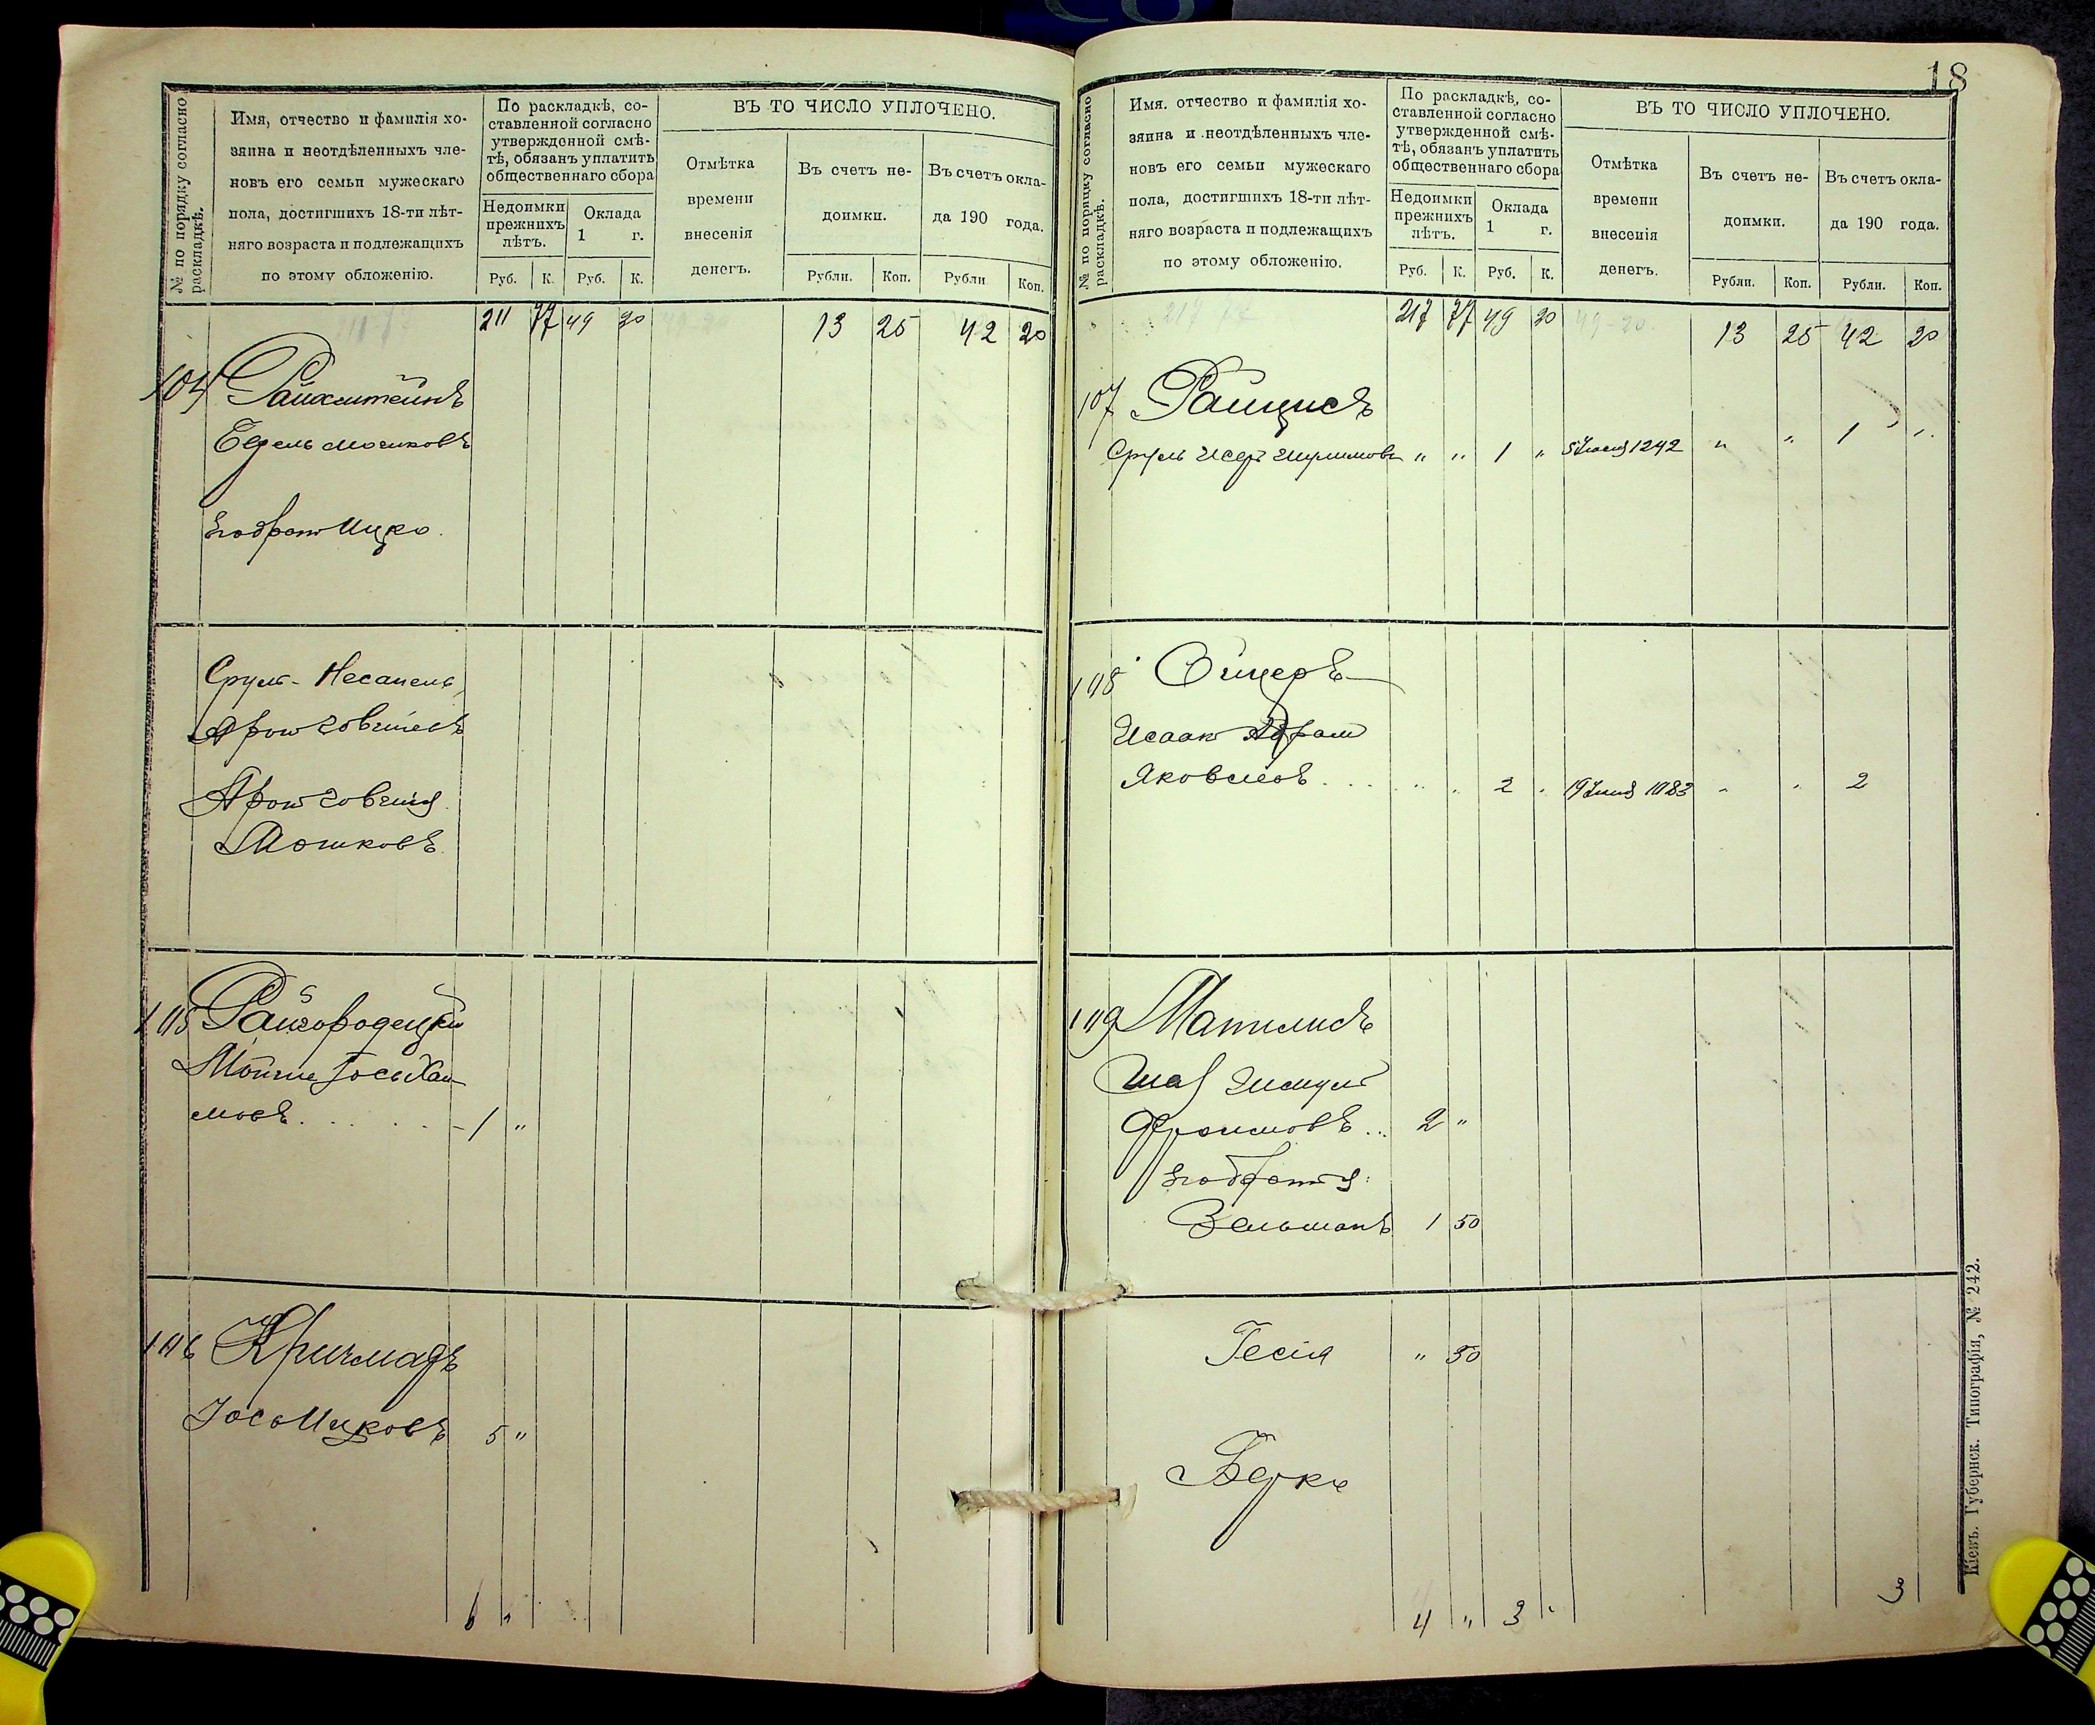 № по порядку согласно раскладкѣ.
Имя, отчество и фамилія хо-
зяина и неотдѣленныхъ чле-
новъ его семьи мужескаго
пола, достигшихъ 18-ти лѣт-
няго возраста и подлежащихъ
по этому обложенію.
По раскладкѣ, со-
ставленной согласно
утвержденной смѣ-
тѣ, обязанъ уплатить
общественнаго сбора
Недоимки
прежнихъ
лѣтъ.
Оклада
1 г.
Руб. К. Руб. К.
ВЪ ТО ЧИСЛО УПЛОЧЕНО.
Отмѣтка
времени
внесенія
денегъ.
Въ счетъ не-
доимки.
Въ счетъ окла-
да 190 года.
Рубли. Коп. Рубли Коп.
211 77 49 20 13 25 42 20
104 Райхштейнъ
Бедель Мошковъ
Его братъ Ицко.
Сруль-Несанель
Арон Ковшиевъ
Мошковъ
105 Райгородецкій
Мойше Іось Хаи-
мовъ . . . . . - 1 "
106 Кричмадъ
Іось Ицковъ 5 "
6 "
18
№ по порядку согласно раскладкѣ.
Имя. отчество и фамилія хо-
зяина и неотдѣленныхъ чле-
новъ его семьи мужескаго
пола, достигшихъ 18-ти лѣт-
няго возраста и подлежащихъ
по этому обложенію.
По раскладкѣ, со-
ставленной согласно
утвержденной смѣ-
тѣ, обязанъ уплатить
общественнаго сбора
Недоимки
прежнихъ
лѣтъ.
Оклада
1 г.
Руб. К. Руб. К.
ВЪ ТО ЧИСЛО УПЛОЧЕНО.
Отмѣтка
времени
внесенія
денегъ.
Въ счетъ не-
доимки.
Въ счетъ окла-
да 190 года.
Рубли. Коп. Рубли. Коп.
217 77
217 77 49 20 49-20 13 25 42 20
107 Райцисъ
Сруль Исер Шулимовъ " " 1 " 5 Іюня 1242 " " 1 "
108
Исаак Абрам
Яковлевъ . . . " " 2 " 19 Іюня 1083 " " 2
109 Матилисъ
Шмуль
Фроимовъ .. 2 "
Его братья:
Зельманъ 1 50
Гесія " 50
Берко
4 " 3 " 3
Кіевъ. Губернск. Типографія, № 242.